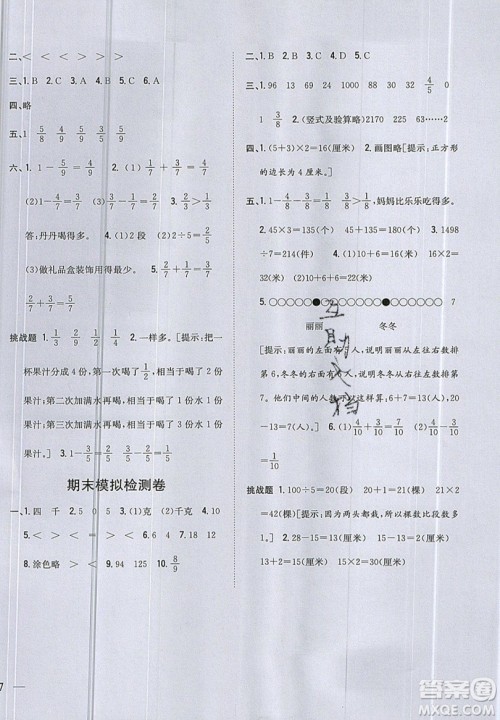 二、＜ ＜ ＜ ＞ ＞ ＞
三、1. B 2. C 3. B 4. A 5. C 6. A
四、略
五、1 5/8 4/9 3/5 5/7 4/9
六、1. 1－5/9＝4/9 2. (1) 1/7＋2/7＝3/7
(2) 1－3/7＝4/7 3. 3/5＞2/5＞1/5
答：丹丹喝得多。 4. (1) 2 (2) 2÷5＝2/5
(3) 做礼品盒装饰用得最少。 5. 4/7＋1/7＋
2/7＋3/7＝0
挑战题 1. 1/3 2/9 3/5 4/7 2. 一样多。[提示：一
杯果汁分成4份，第一次喝了1/2，即喝了2份
果汁；第二次加满水再喝，相当于喝了1份水1份
果汁；第三次加满水再喝，相当于喝了1份水1份
果汁。] 3. 1－3/5＝2/5 2/5－1/5＝1/5
期末模拟检测卷
一、1. 四 千 2. 5 0 5 3. (1) 克 (2) 千克 4. 0
5. ＞ ＜ ＞ ＜ ＞ 6. 4 7. 18 12
8. 涂色略 ＞ ＜ 9. 94 125 10. 8/9
二、1. B 2. B 3. B 4. C 5. C
三、1. 96 13 29 1000 32 4/5 0
0 1 3/8 2. (竖式及验算略) 2170 225
四、1. 5＋5＋3＋3＝16(厘米) 2. 画图略[提示：正方形
的边长为4厘米。]
五、1. 1－4/8－3/8＝1/8 3/8＞1/8，妈妈比乐乐吃得多。
2. 45×3＝135(个) 45＋135＝180(个) 3. 1498
÷7＝214(个) 4. (1) 4×10＝40(厘米) 16×2＝
32(厘米) (2) 10＋6＝16(厘米)
5. 7
丽丽 冬冬
[提示：丽丽的左面有7人，说明丽丽从左往右数排
第6，冬冬的右面有7人，说明冬冬从右往左数排
第7。他们中间的人数可以这样算：6＋7＝13(人)，
20－13＝7(人)。] 6. (1) 4/10＋3/10＝7/10 (2) 1－4/10
－3/10＝3/10
挑战题 1. 100÷5＝20(段) 20＋1＝21(棵)
21×2＝42(棵)[提示：因为两头都栽，所以棵数比段数多
1。] 2. 28－15＝13(厘米) 15－13＝2(厘米)
13＋2＝15(厘米)
互
助
文
档
7
答案圈
MXQE.COM